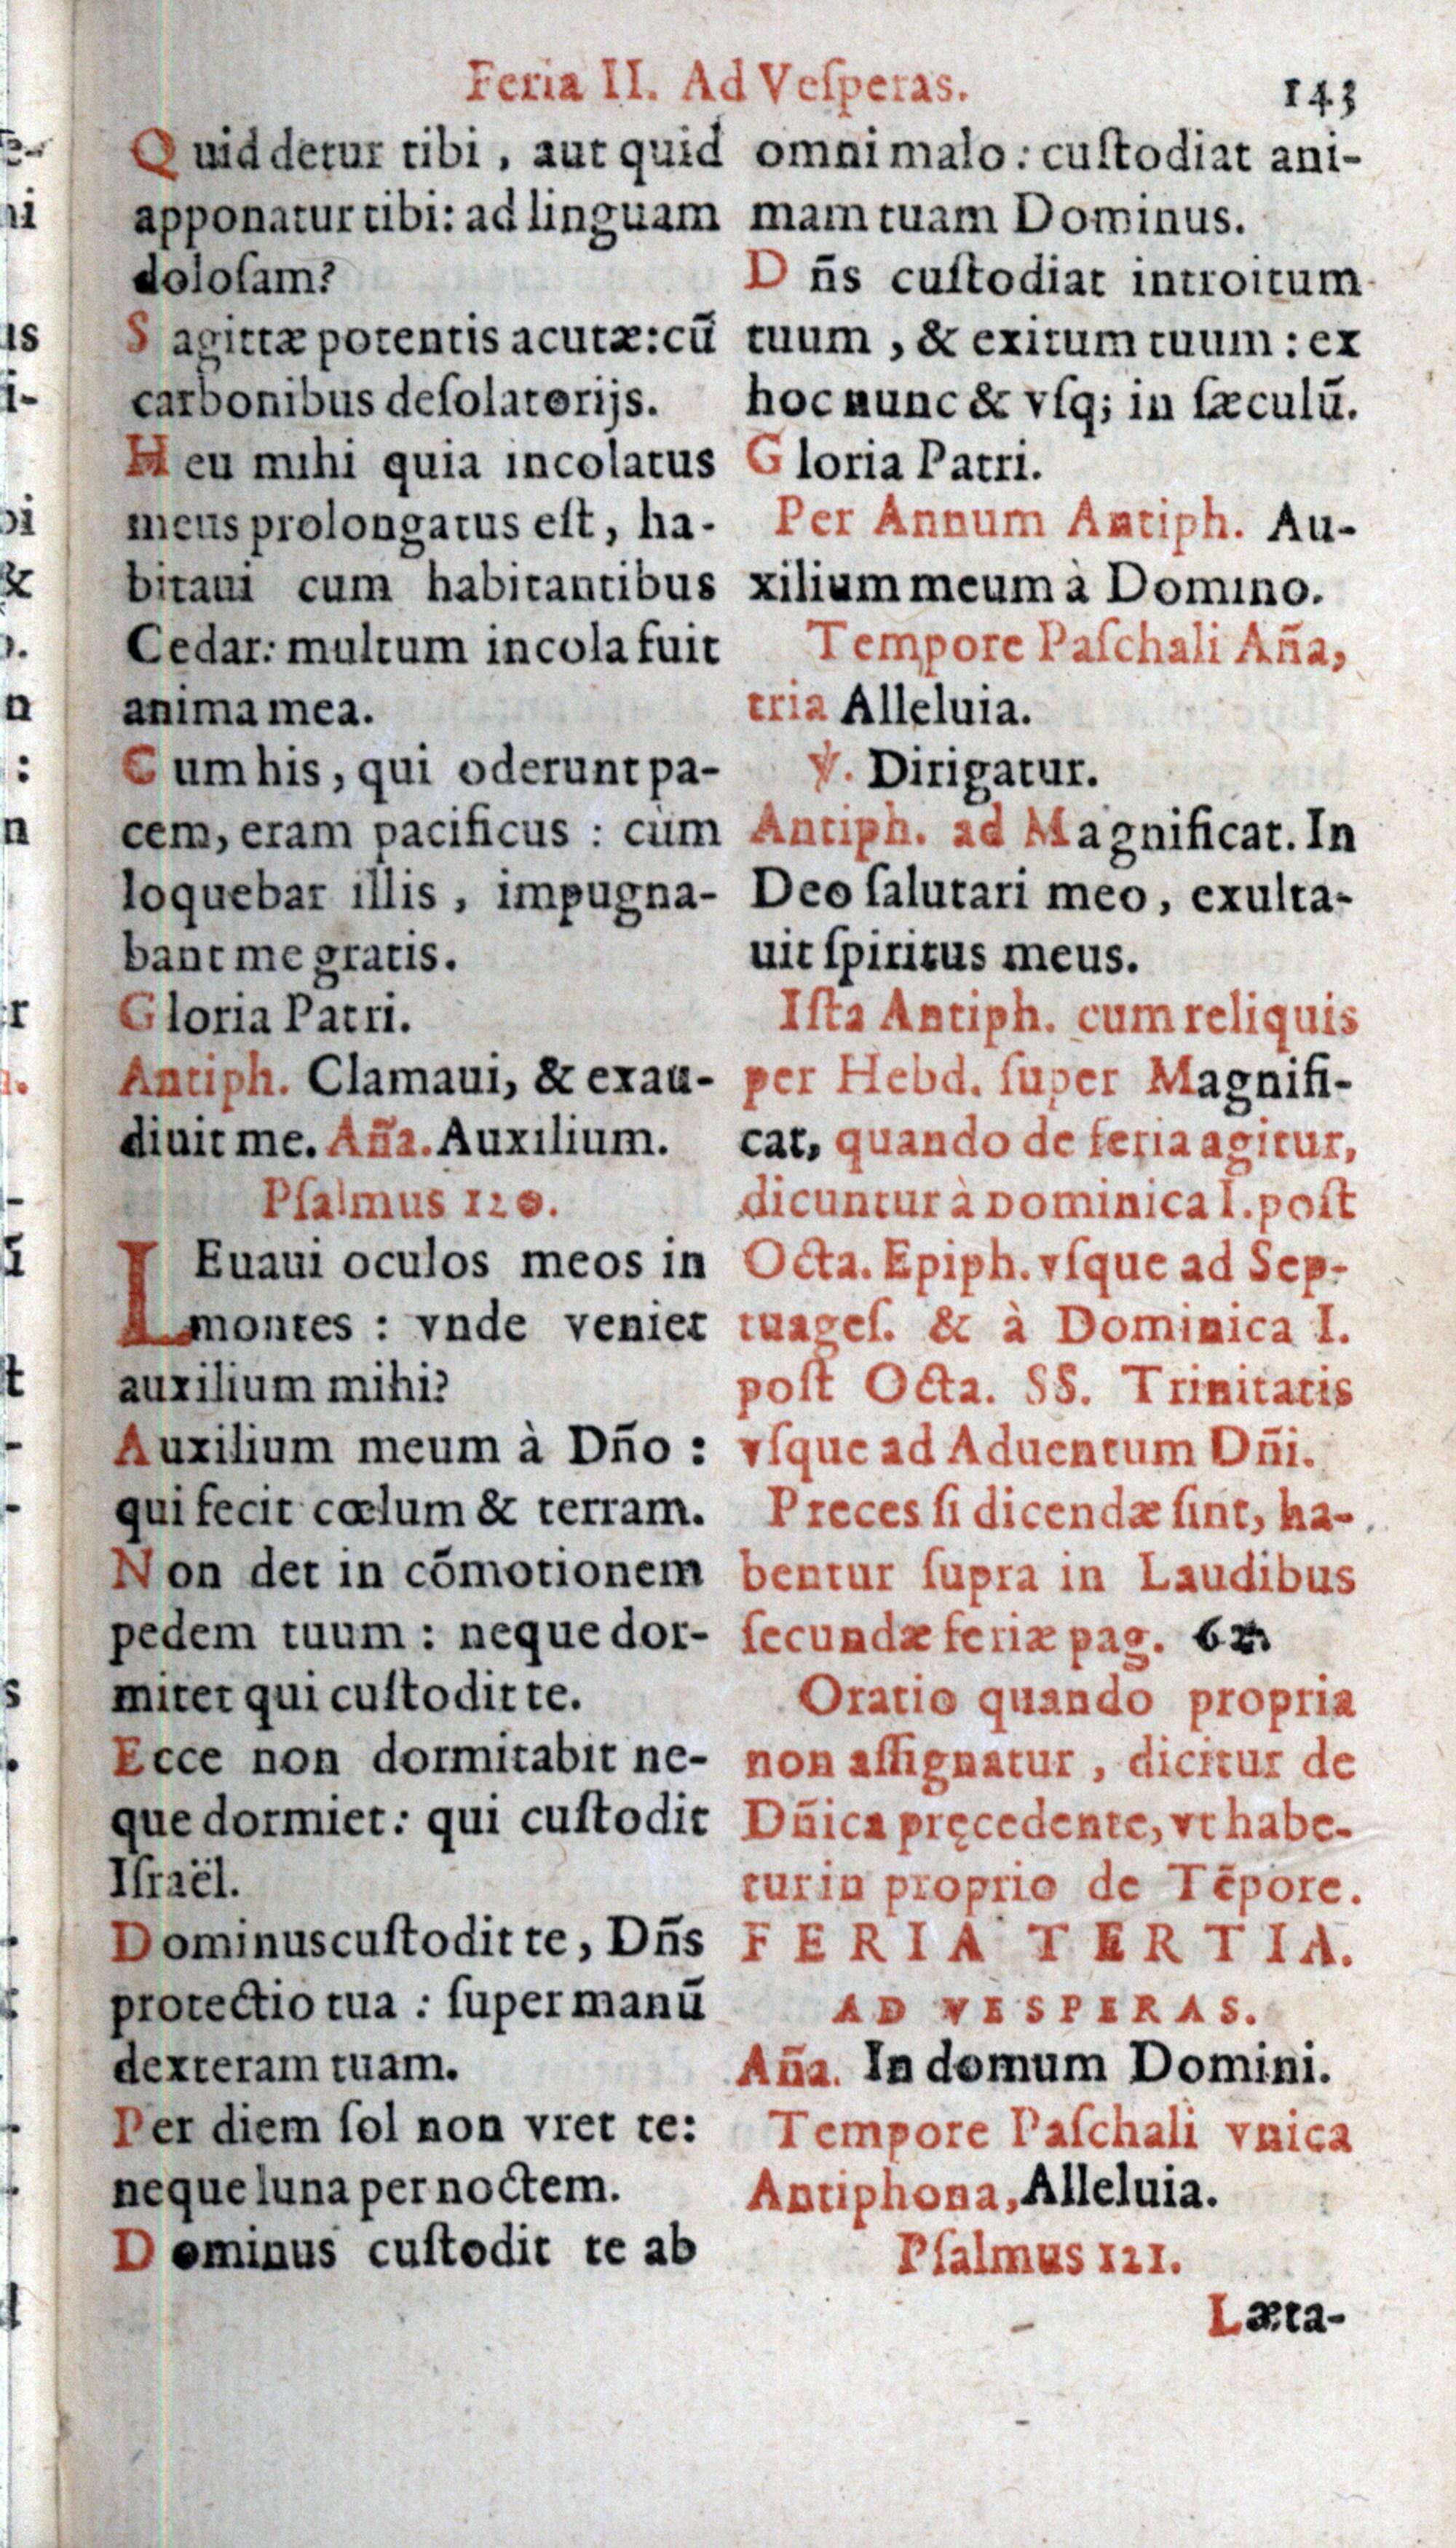 Feria II. Ad Veſperas.
143
Quid detur tibi, aut quid
apponatur tibi: ad linguam
doloſam?
Sagittæ potentis acutæ: cū
carbonibus deſolatorijs.
Heu mihi quia incolatus
meus prolongatus eſt, ha-
bitaui cum habitantibus
Cedar: multum incola fuit
anima mea.
Cum his, qui oderunt pa-
cem, eram pacificus : cùm
loquebar illis, impugna-
bant me gratis.
Gloria Patri.
Antiph. Clamaui, & exau-
diuit me. Aña. Auxilium.
Pſalmus 120.
LEuaui oculos meos in
montes : vnde veniet
auxilium mihi?
Auxilium meum à Dño :
qui fecit cœlum & terram.
Non det in cōmotionem
pedem tuum : neque dor-
mitet qui cuſtodit te.
Ecce non dormitabit ne-
que dormiet: qui cuſtodit
Iſraël.
Dominus cuſtodit te, Dñs
protectio tua : ſuper manū
dexteram tuam.
Per diem ſol non vret te:
neque luna per noctem.
Dominus cuſtodit te ab
omni malo: cuſtodiat ani-
mam tuam Dominus.
Dñs cuſtodiat introitum
tuum, & exitum tuum : ex
hoc nunc & vſq; in ſæculū.
Gloria Patri.
Per Annum Antiph. Au-
xilium meum à Domino.
Tempore Paſchali Aña,
tria Alleluia.
℣. Dirigatur.
Antiph. ad Magnificat. In
Deo ſalutari meo, exulta-
uit ſpiritus meus.
Iſta Antiph. cum reliquis
per Hebd. ſuper Magnifi-
cat, quando de feria agitur,
dicuntur à Dominica I. poſt
Octa. Epiph. vſque ad Sep-
tuageſ. & à Dominica I.
poſt Octa. SS. Trinitatis
vſque ad Aduentum Dñi.
Preces ſi dicendæ ſint, ha-
bentur ſupra in Laudibus
ſecundæ feriæ pag.
Oratio quando propria
non aſſignatur, dicitur de
Dñica pręcedente, vt habe-
tur in proprio de Tēpore.
FERIA TERTIA.
AD VESPERAS.
Aña. In domum Domini.
Tempore Paſchali vnica
Antiphona, Alleluia.
Pſalmus 121.
Læta-